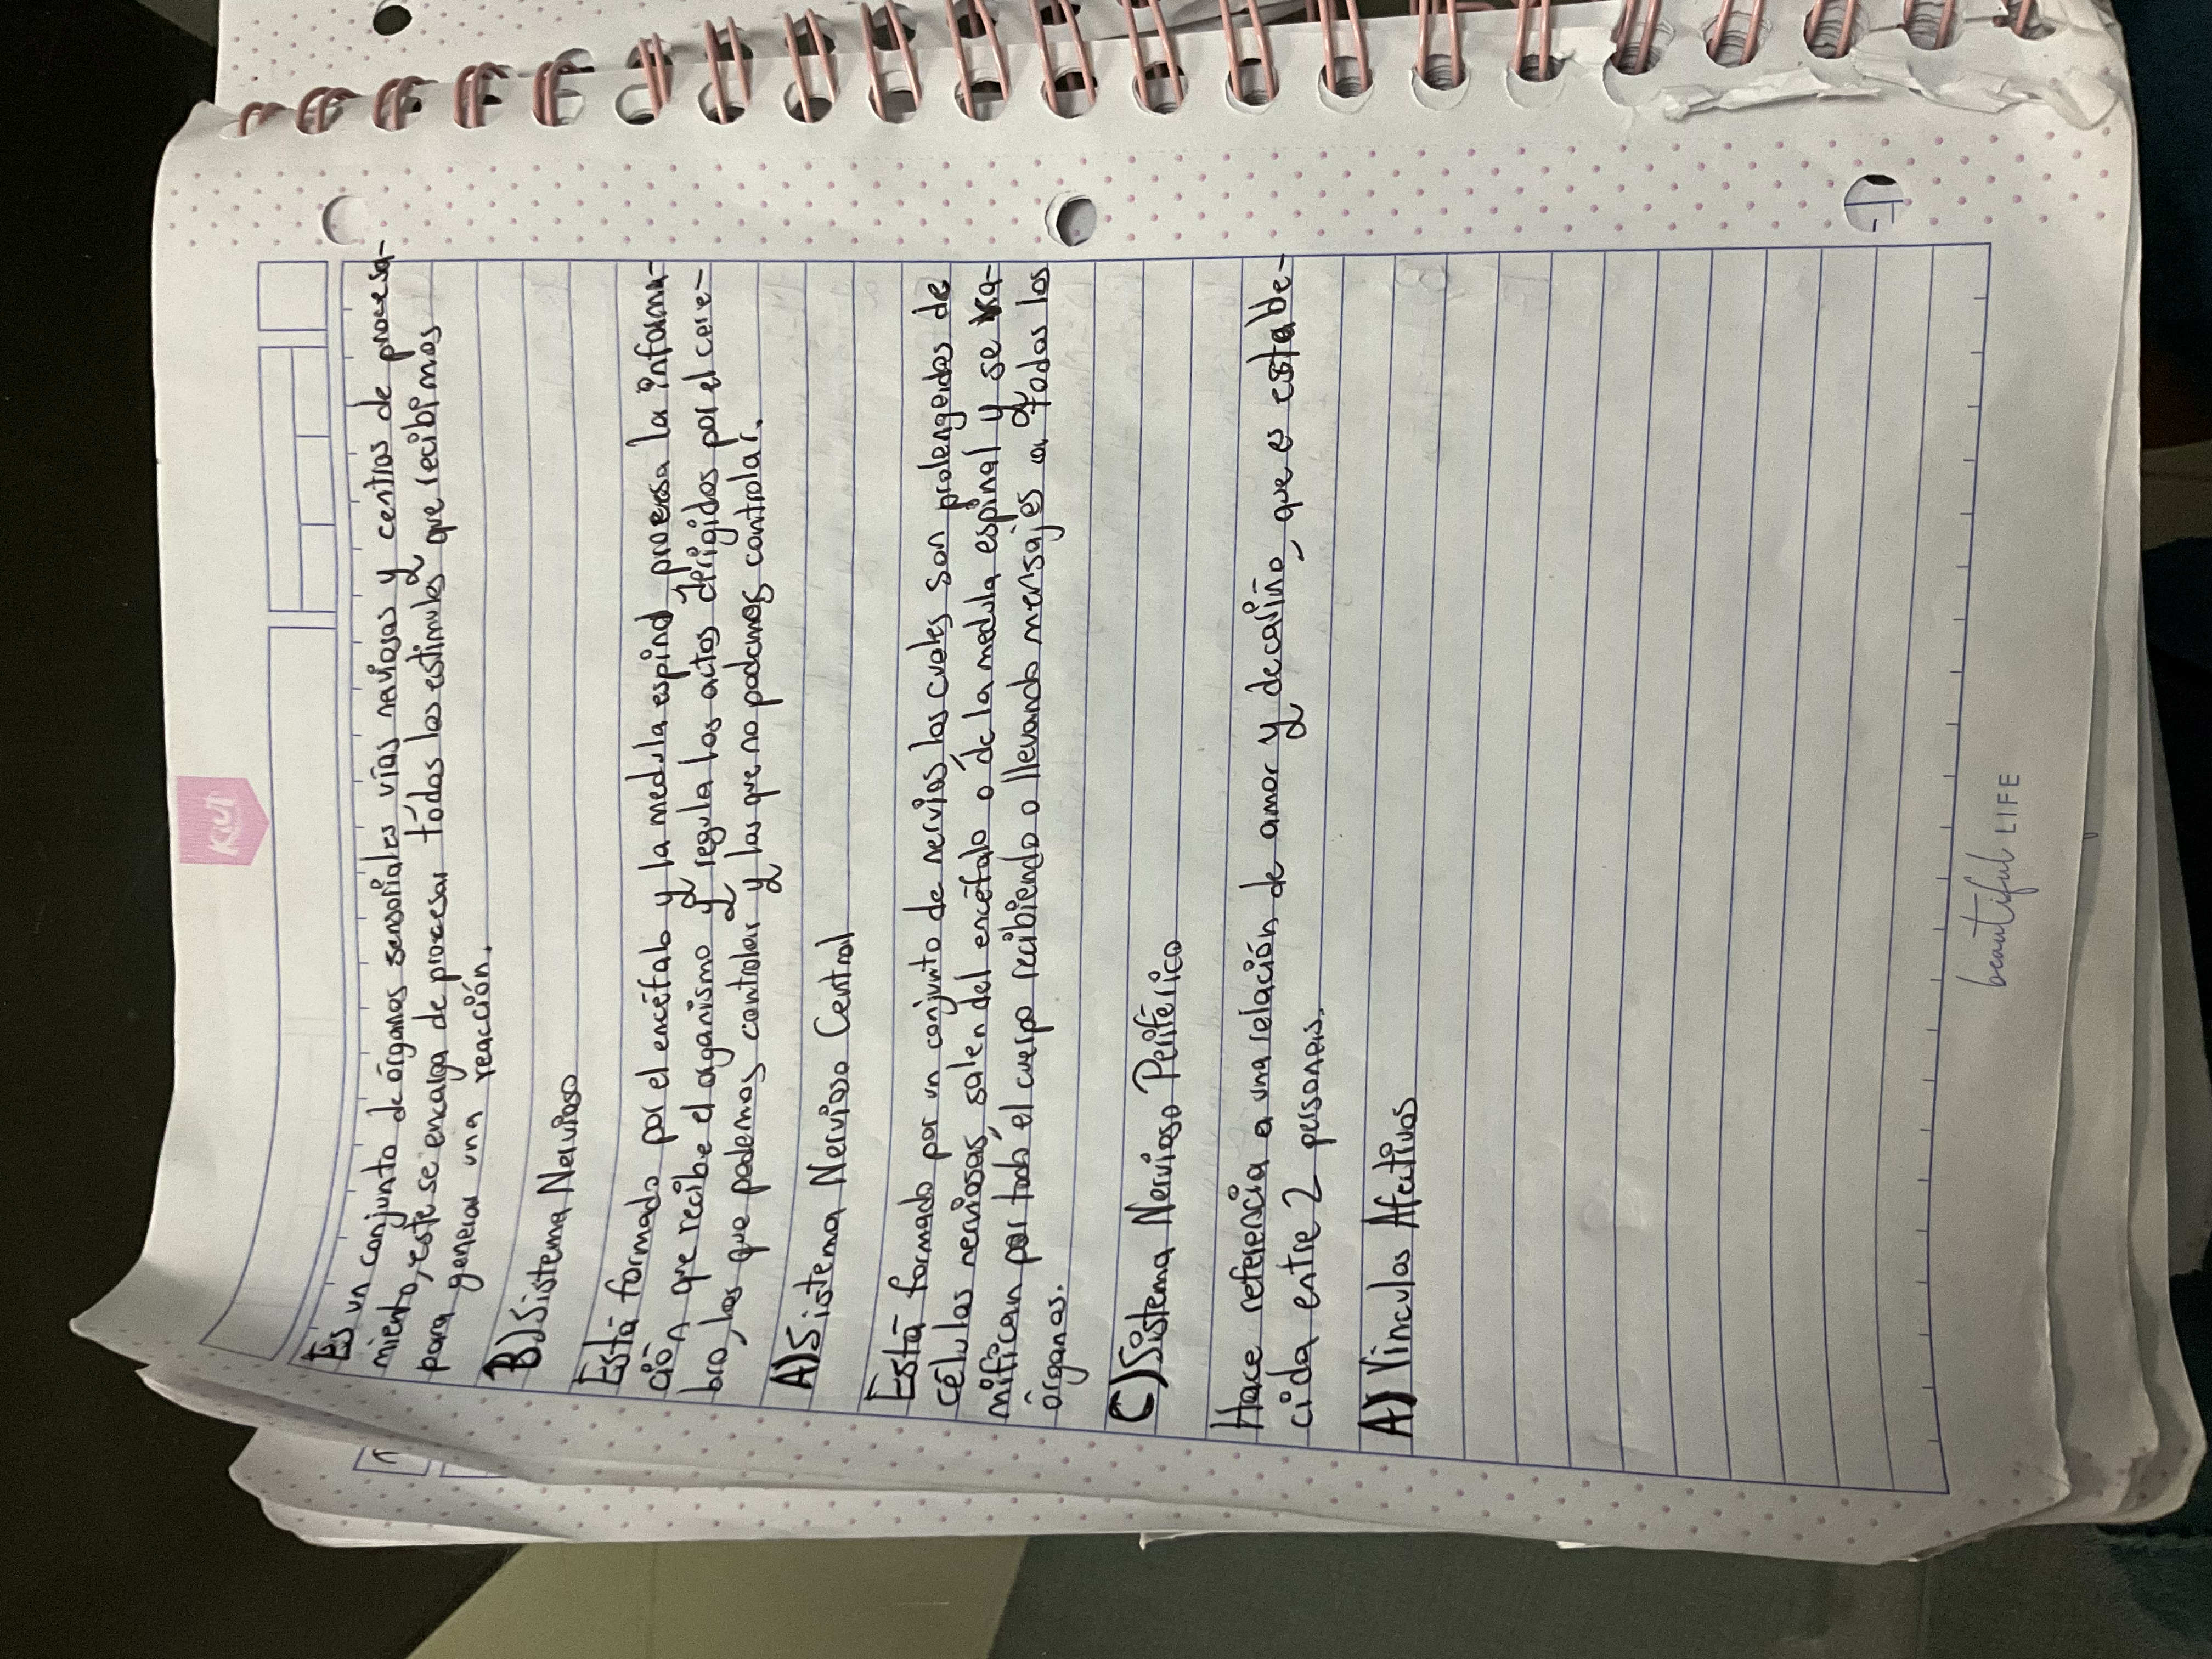 KIUT
Es un conjunto de órganos sensoriales vías nerviosas y centros de procesa-
miento, este se encarga de procesar todos los estimulos que recibimos
para generar una reacción.
B) Sistema Nervioso
Está formado por el encéfalo y la medula espinal, procesa la informa-
ción que recibe el organismo y regula los actos dirigidos por el cere-
bro, los que podemos controlar y los que no podemos controlar.
A) Sistema Nervioso Central
Está formado por un conjunto de nervios los cuales son prolongados de
células nerviosas, salen del encéfalo o de la medula espinal y se ra-
mifican por todo el cuerpo recibiendo o llevando mensajes a todos los
órganos.
C) Sistema Nervioso Periférico
Hace referencia a una relación de amor y de cariño, que es estable-
cida entre 2 personas.
A) Vinculos Afectivos
beautiful LIFE